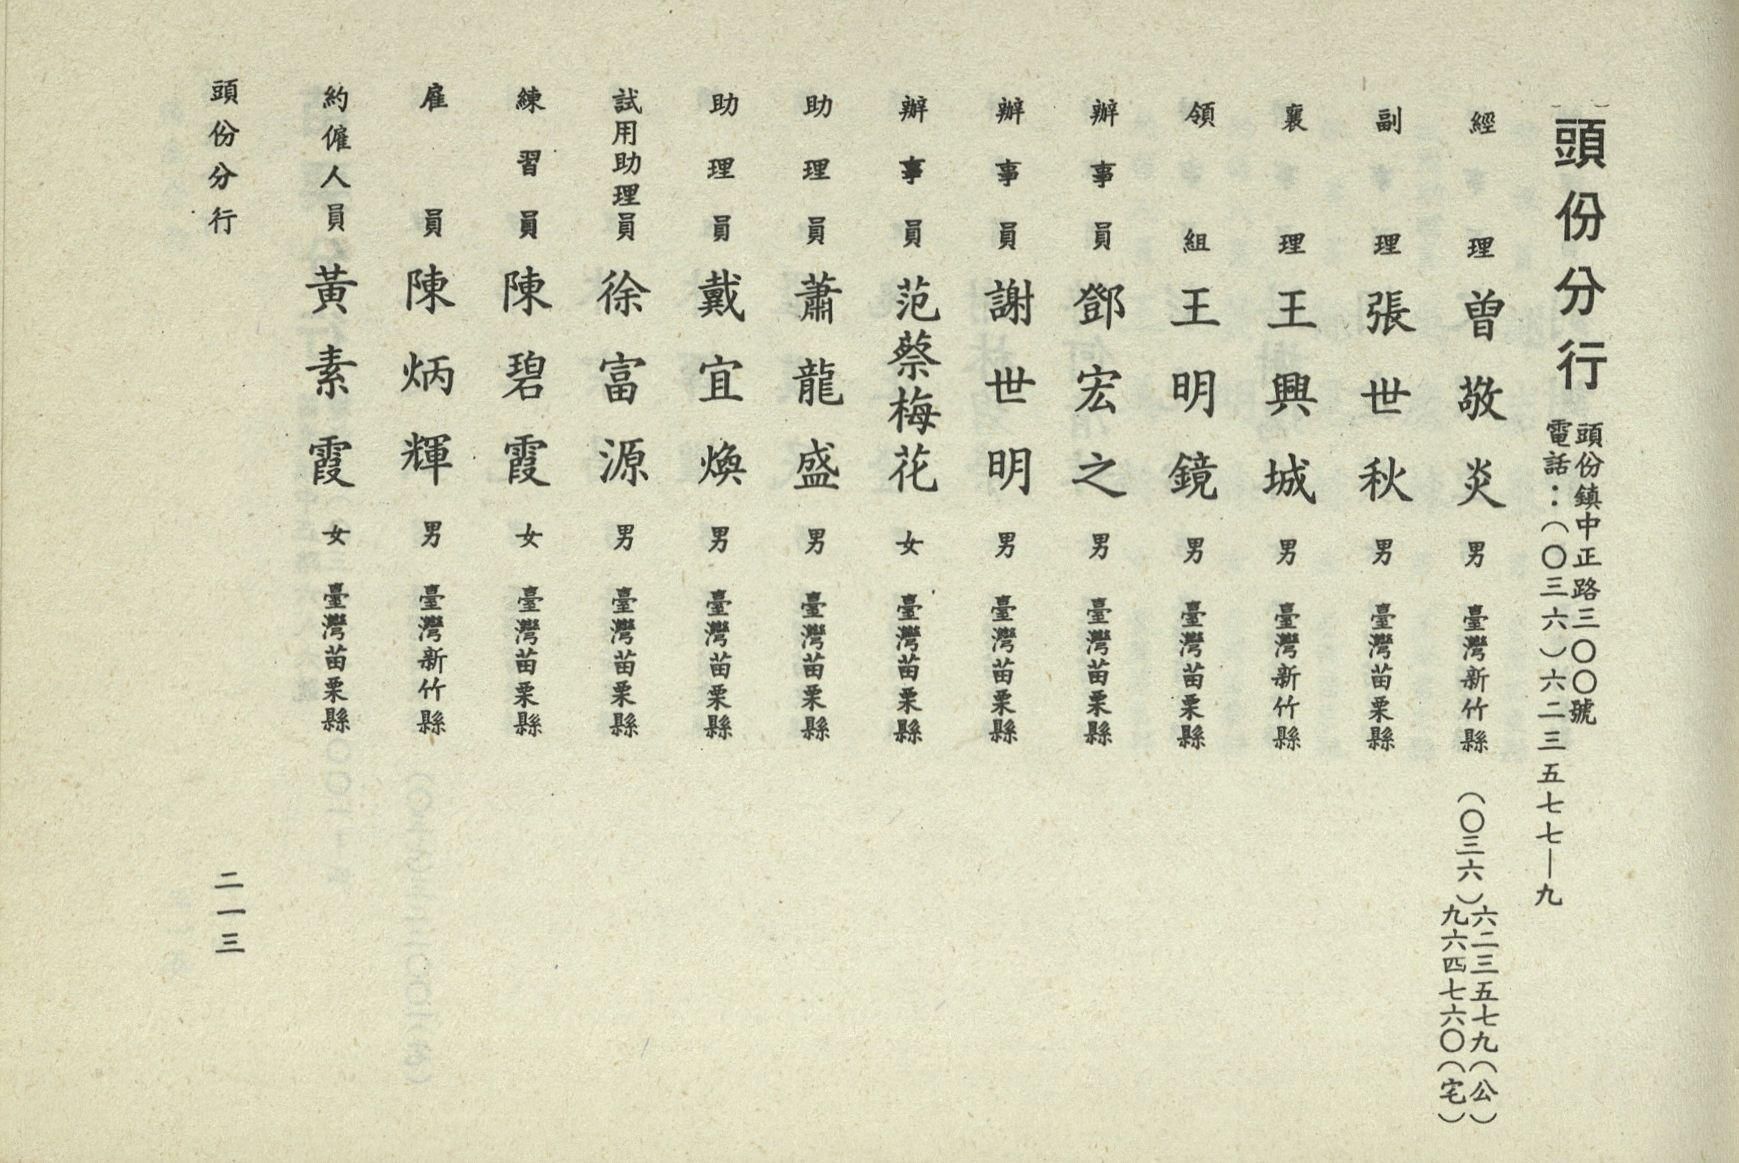 頭份分行
頭份鎮中正路三〇〇號
電話：(〇三六)六二三五七七—九
經理 曾敬炎 男 臺灣新竹縣 (〇三六)六二三五七九(公)
九六四七六〇(宅)
副理 張世秋 男 臺灣苗栗縣
襄理 王興城 男 臺灣新竹縣
領組 王明鏡 男 臺灣苗栗縣
辦事員 鄧宏之 男 臺灣苗栗縣
辦事員 謝世明 男 臺灣苗栗縣
辦事員 范蔡梅花 女 臺灣苗栗縣
助理員 蕭龍盛 男 臺灣苗栗縣
助理員 戴宜煥 男 臺灣苗栗縣
試用助理員 徐富源 男 臺灣苗栗縣
練習員 陳碧霞 女 臺灣苗栗縣
雇員 陳炳輝 男 臺灣新竹縣
約僱人員 黃素霞 女 臺灣苗栗縣
頭份分行
二一三